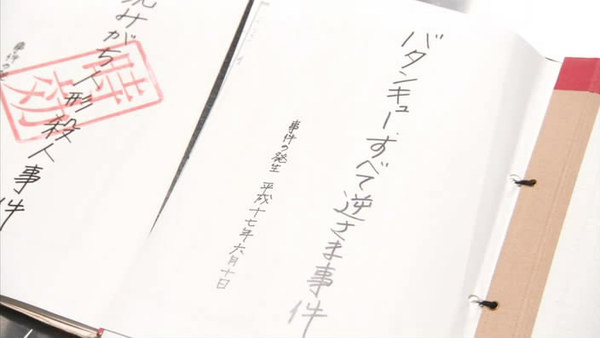 バタンキューすべて逆さま事件
事件の発生 平成十七年六月十日
みがち人形殺人事件
時効
事件の発